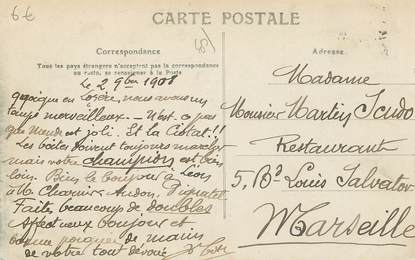 6€
CARTE POSTALE
Correspondance
Tous les pays étrangers n'acceptent pas la correspondance
au recto, se renseigner à la Poste
Le 2 9bre 1908
quoique en Lozère, nous avons un
temps merveilleux. - N'est-ce pas
que Mende est joli. Et la Cabat!!
Les boîtes doivent toujours marcher
mais votre champion est bien
loin. Bien le bonjour à Léon
à M. Charnier
Faites beaucoup de doubles
Affectueux bonjour et
bonne poignée de mains
de votre tout dévoué
Adresse
Madame
Monsieur Martin
Restaurant
5, Bd Louis Salvator
Marseille